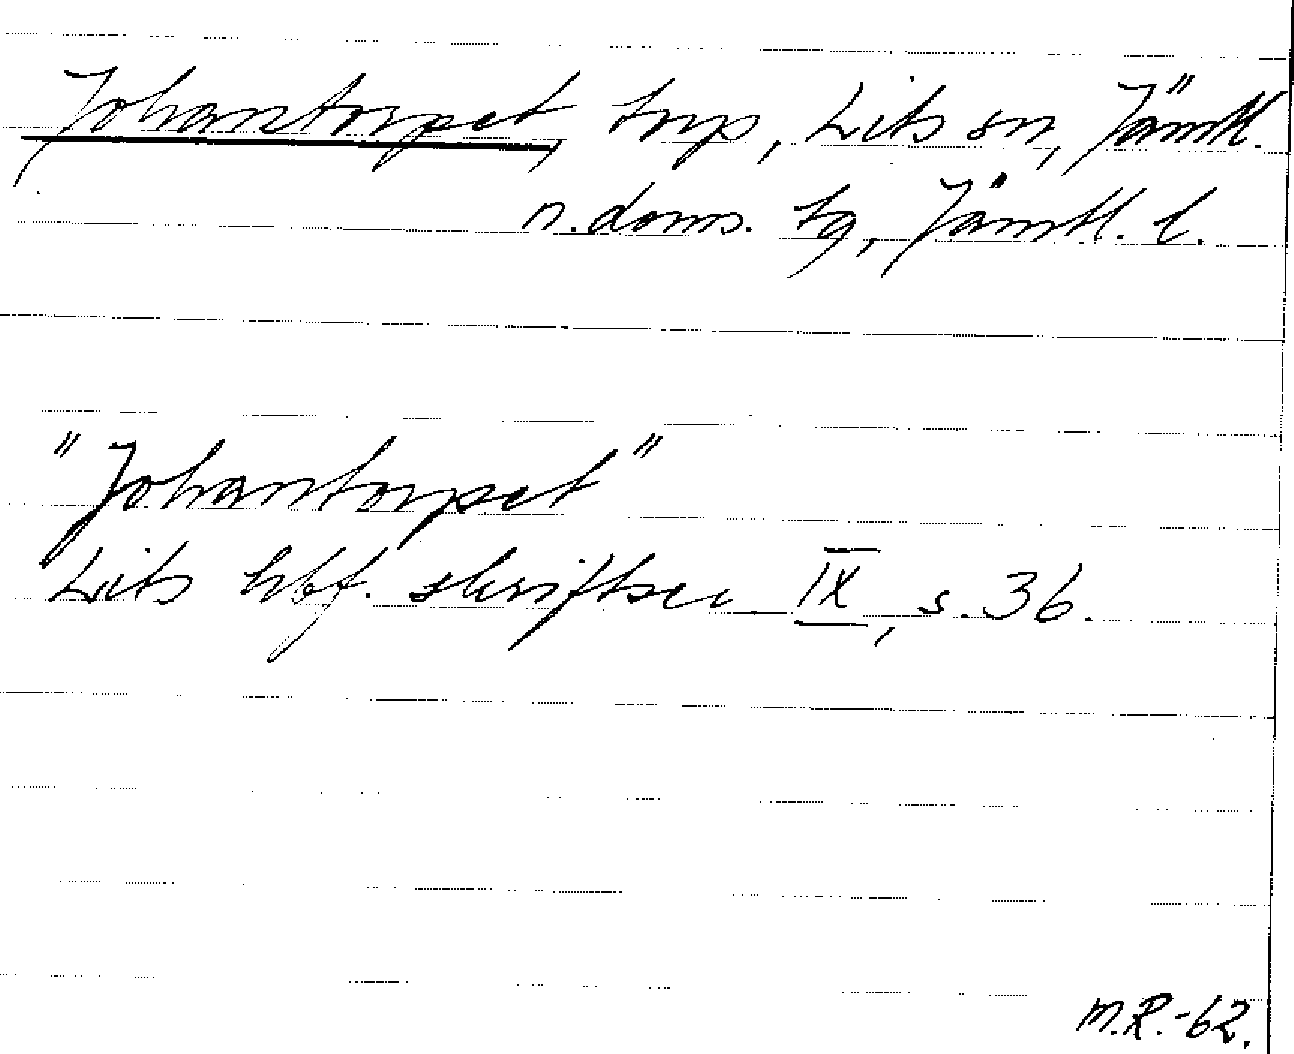 Johantorpet, torp, Lits sn, Jämtl.
n. doms. tg, Jämtl. l.
"Johantorpet"
Lits hbf. skriftser. IX, s. 36.
M.R.-62.